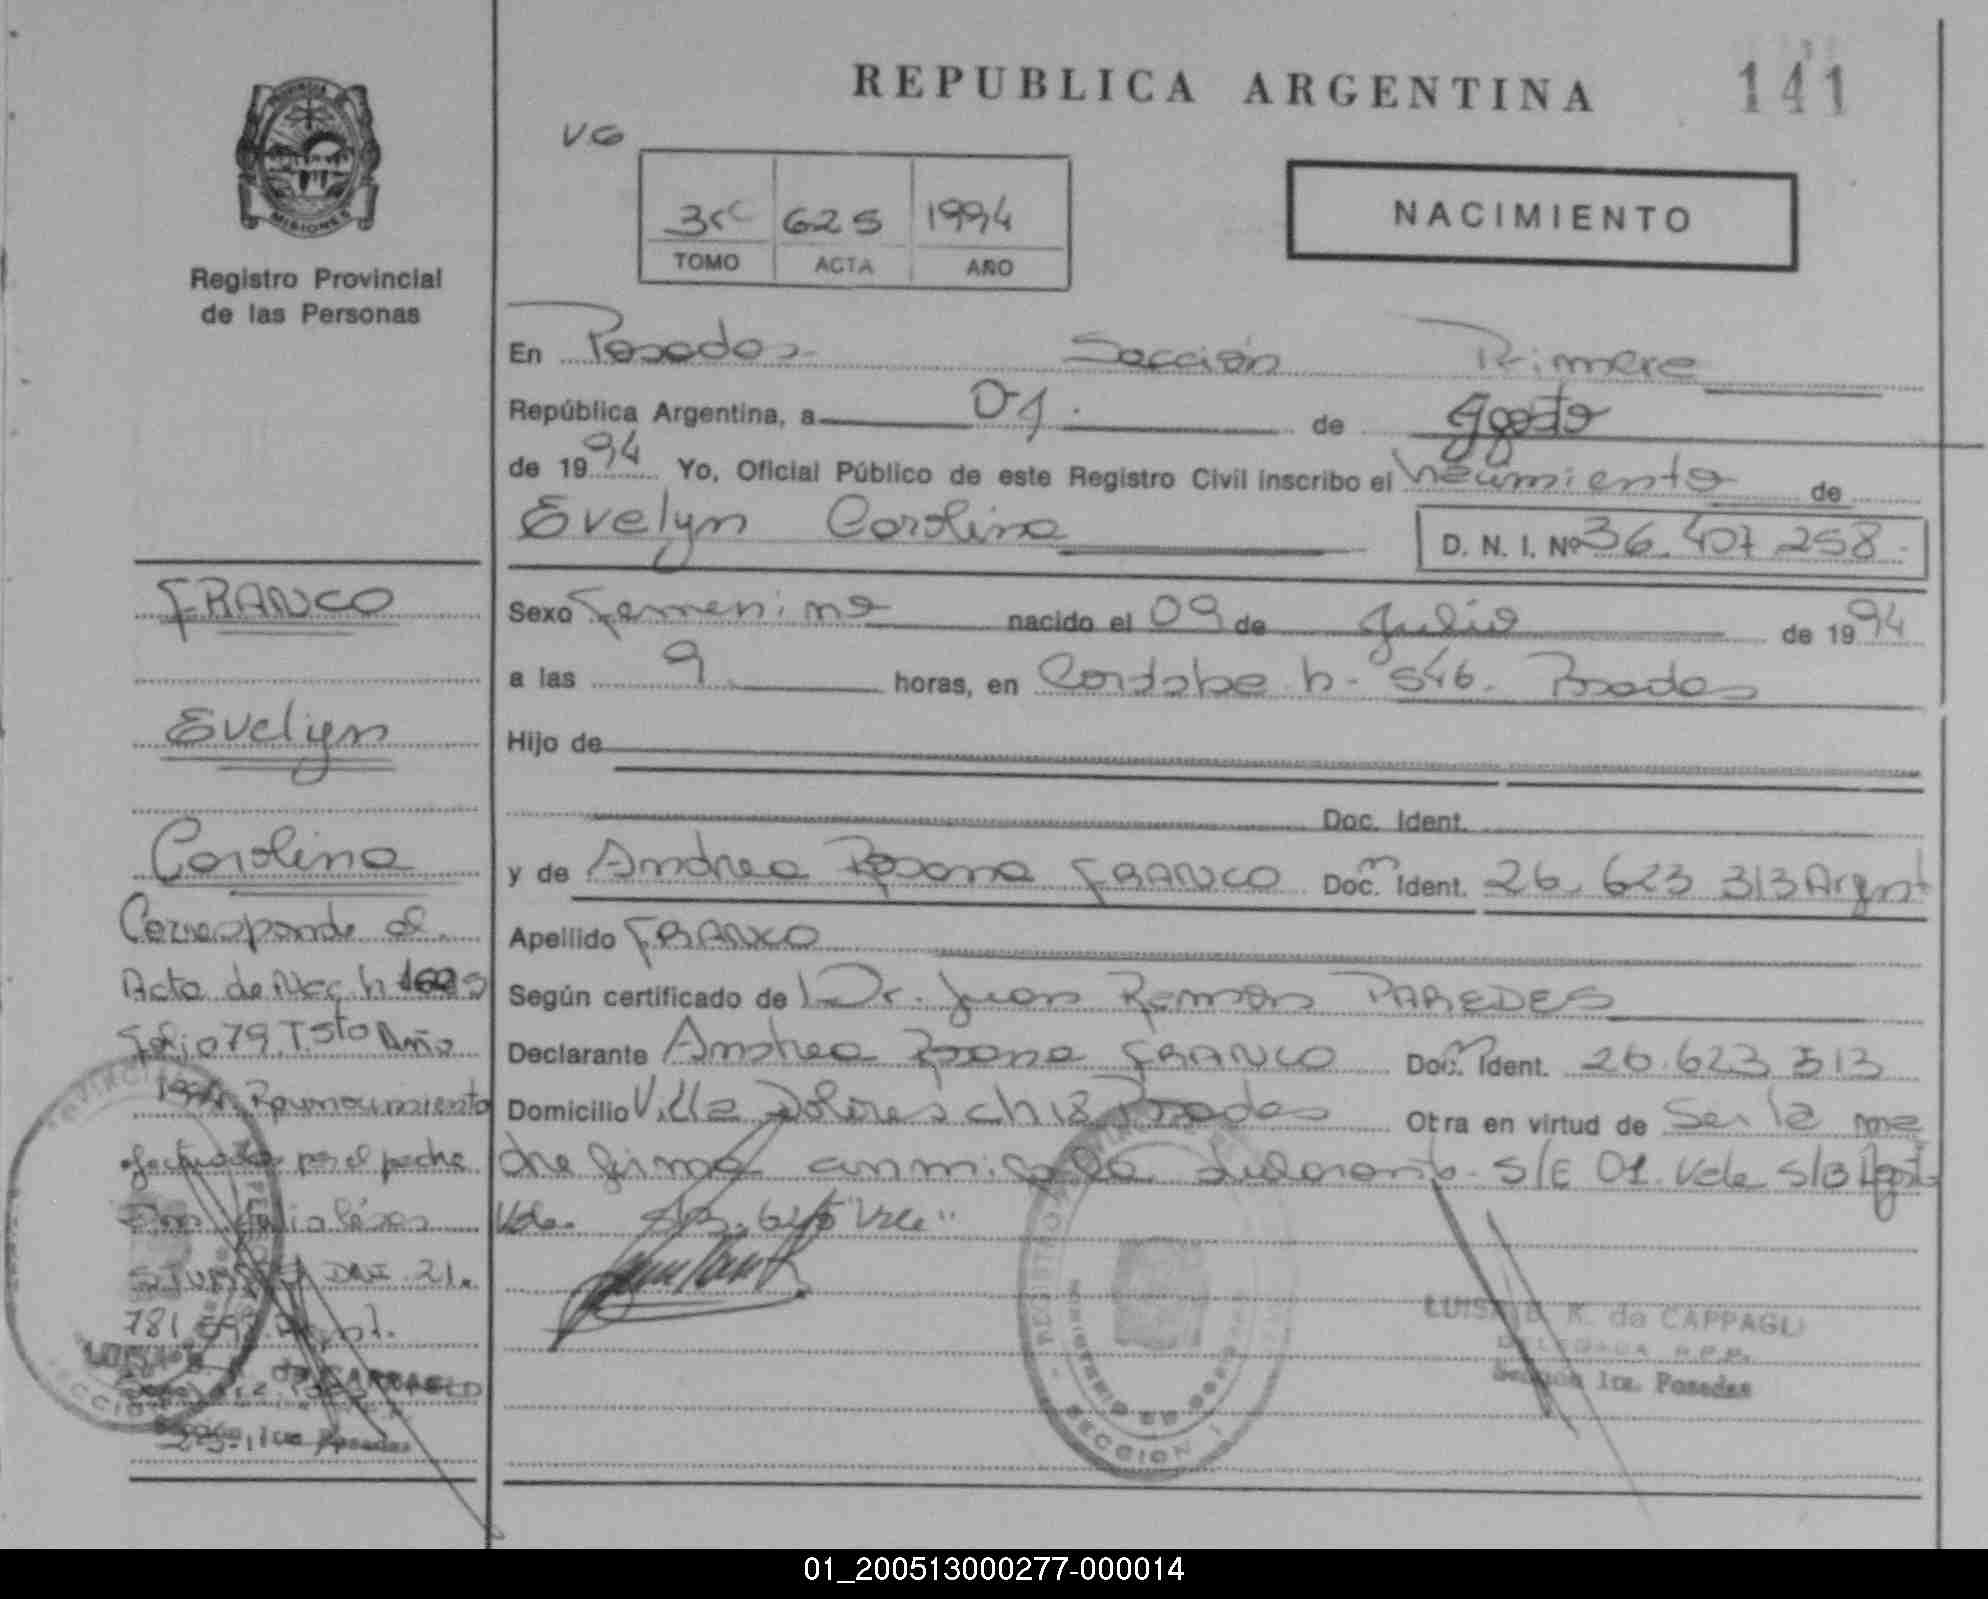 REPUBLICA ARGENTINA
141
PROVINCIA DE
MISIONES
Registro Provincial
de las Personas
V.G
625 1994
TOMO ACTA AÑO
NACIMIENTO
En Posadas Sección Primera
República Argentina, a 01 de Agosto
de 1994 Yo, Oficial Público de este Registro Civil inscribo el Nacimiento de
Evelyn Carolina D. N. I. Nº 36.407.258
Sexo Femenino nacido el 09 de Julio de 1994
a las 9 horas, en Cordoba n- 546. Posadas
Hijo de
Doc. Ident.
y de Andrea Rosana FRANCO Doc. Ident. 26.623 313 Argent
Apellido FRANCO
Según certificado de Dr. Juan Ramon PAREDES
Declarante Andrea Rosana FRANCO Doc. Ident. 26.623 313
Domicilio Villa Dolores ch 18 Posadas Otra en virtud de Ser la ma
dre firma conmigo la declarante. S/E 01. Vale S/B Agosto
Vale. S/B. 625 Vale"
LUISA B. K. de CAPPAGLI
DELEGADA R.P.P.
Sección 1ra. Posadas
SECCION 1
FRANCO
Evelyn
Carolina
Corresponde al
Acta de Nac. n
Folio 79. T. 5to Año
1994. Reconocimiento
efectuado por el padre
DNI 21.
781
de CAPPAGLI
Sección 1ra Posadas
01_200513000277-000014